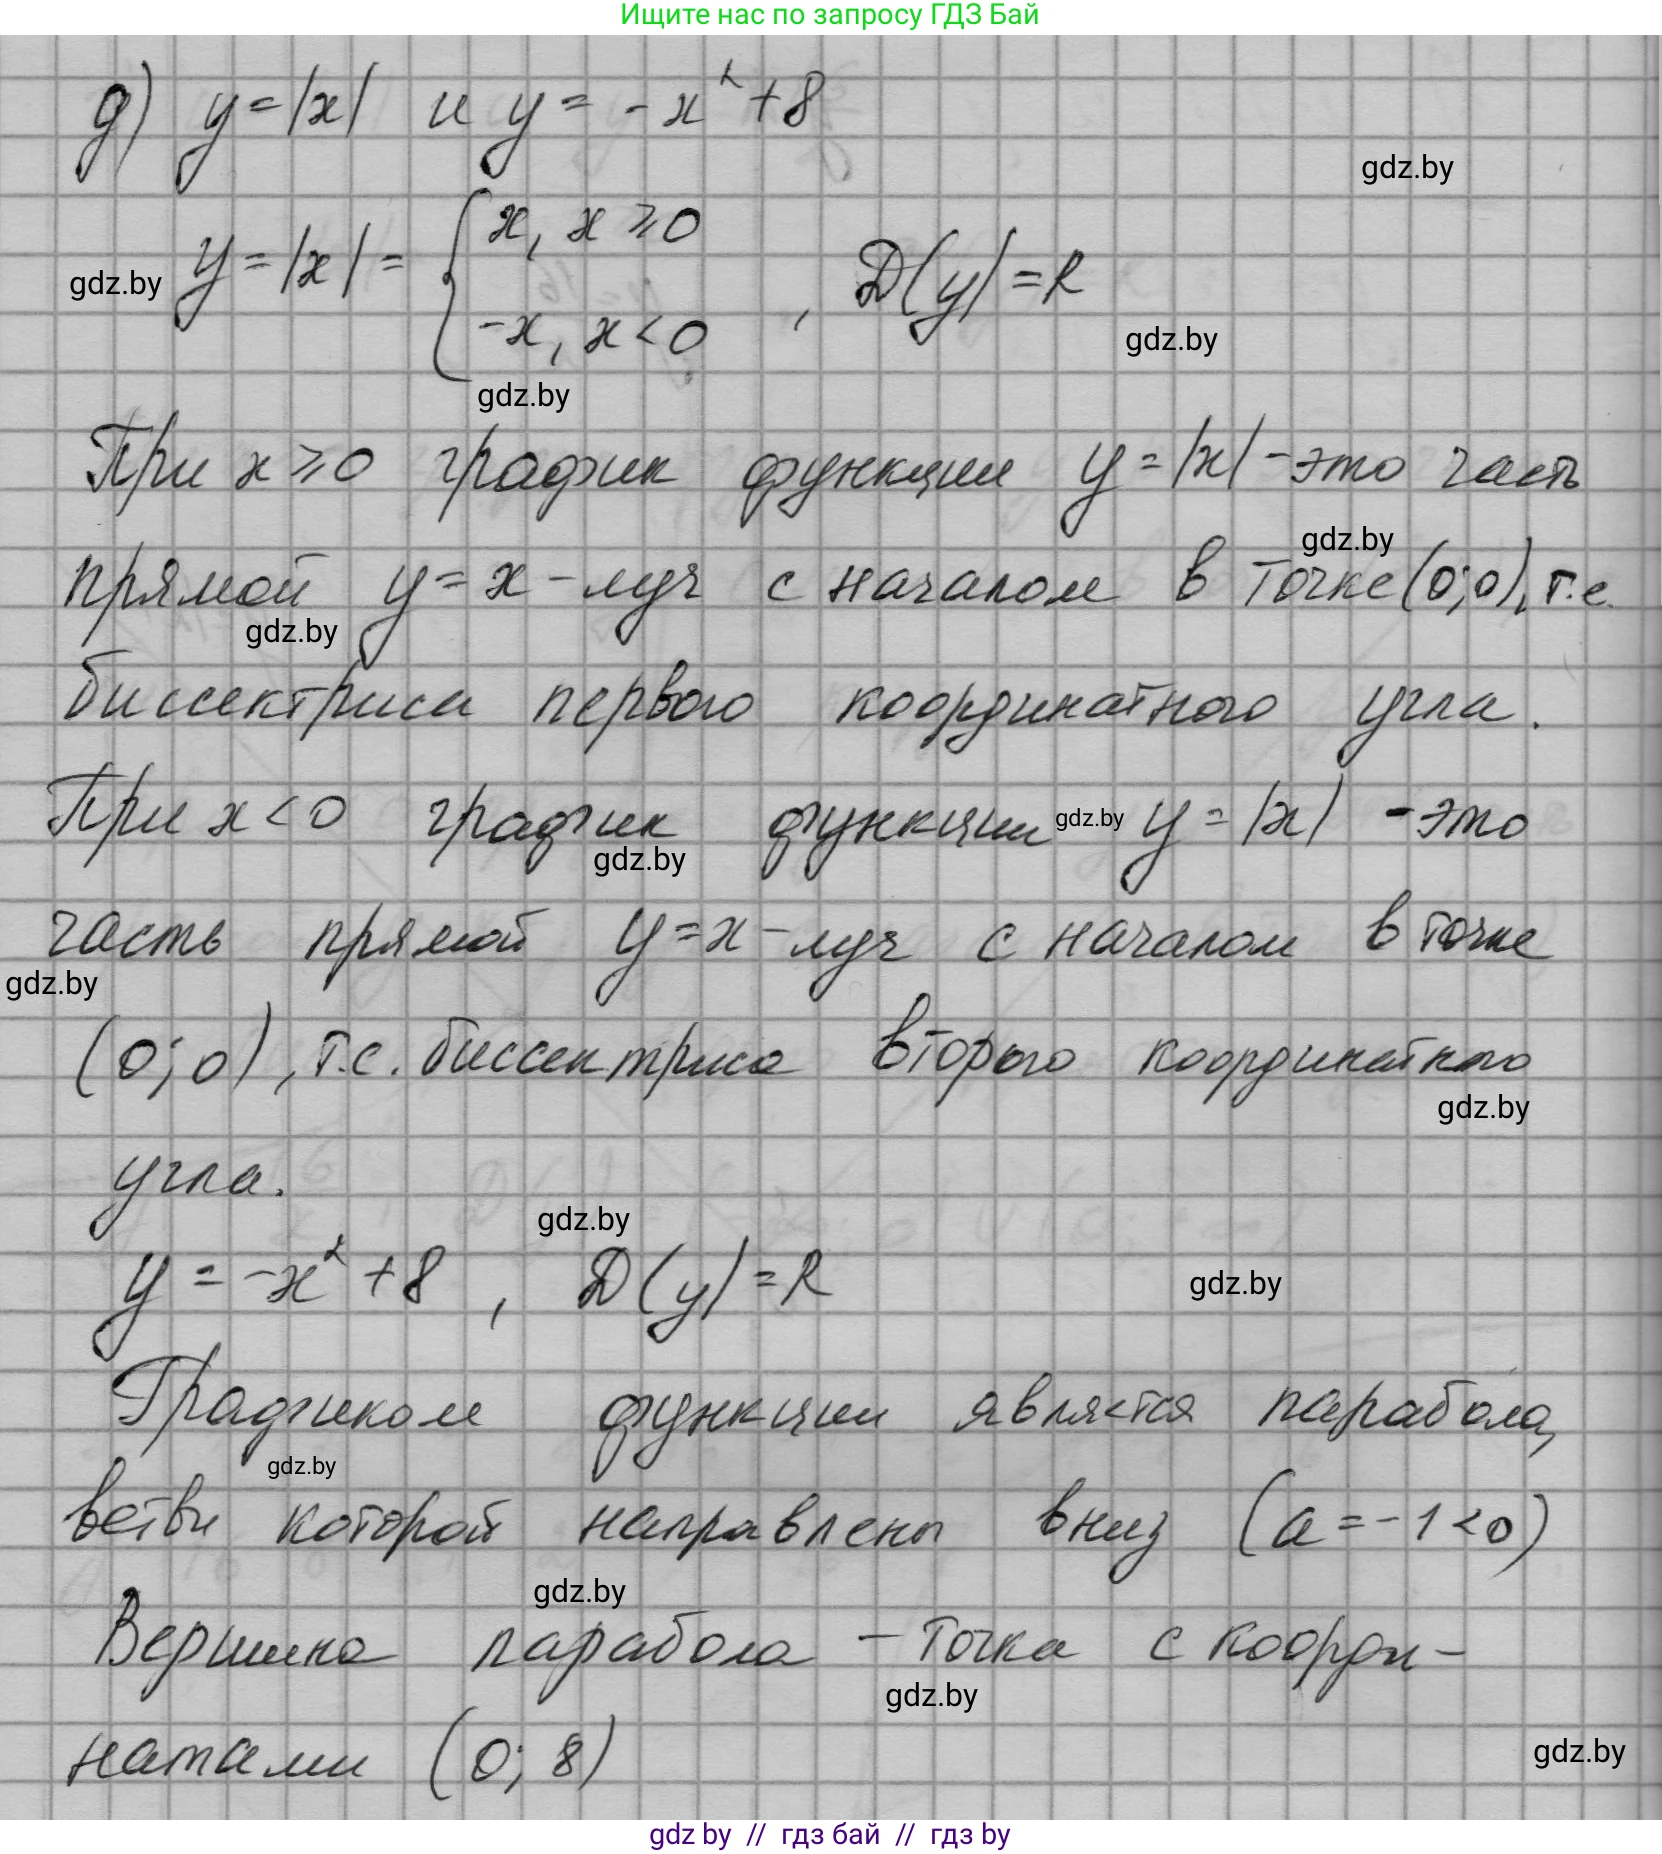 Ищите нас по запросу ГДЗ Бай
д) y=|x| и y = -x² +8
gdz.by
y=|x| = { x, x ≥ 0
-x, x < 0 , D(y)=R
gdz.by
gdz.by
gdz.by
При x ≥ 0 график функции y=|x| - это часть
gdz.by
прямой y=x - луч с началом в точке (0;0), т.е.
gdz.by
биссектриса первого координатного угла.
При x < 0 график функции gdz.by y=|x| - это
gdz.by
часть прямой y=x - луч с началом в точке
gdz.by
(0;0), т.е. биссектриса второго координатного
gdz.by
угла.
gdz.by
y = -x² +8 , D(y)=R
gdz.by
Графиком функции является парабола,
gdz.by
ветви которой направлены вниз (a=-1<0)
gdz.by
Вершина парабола - точка с коорди-
gdz.by
натами (0; 8)
gdz.by
gdz by // гдз бай // гдз by